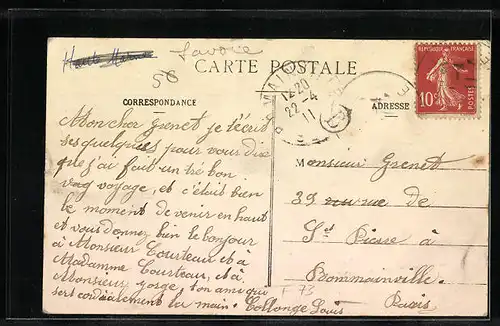 Haute Marne
Savoie
58
CARTE POSTALE
CORRESPONDANCE
ADRESSE
12-20
22-4
11
REPUBLIQUE FRANÇAISE
10c
POSTES
Mon cher Grenet je técrit
ses quelques pour vous dire
que j'ai fait un tré bon
voyage, et c'était bien
le moment de venir en haut
et vous donnez bien le bonjour
à Monsieur Courteau, et a
Madamme Courteau, et à
Monsieur ton ami qui
sert cordialement la main. Collonge Louis
Monsieur Grenet
39 rue de
St Pierre à
Bommainville.
Paris
F 73